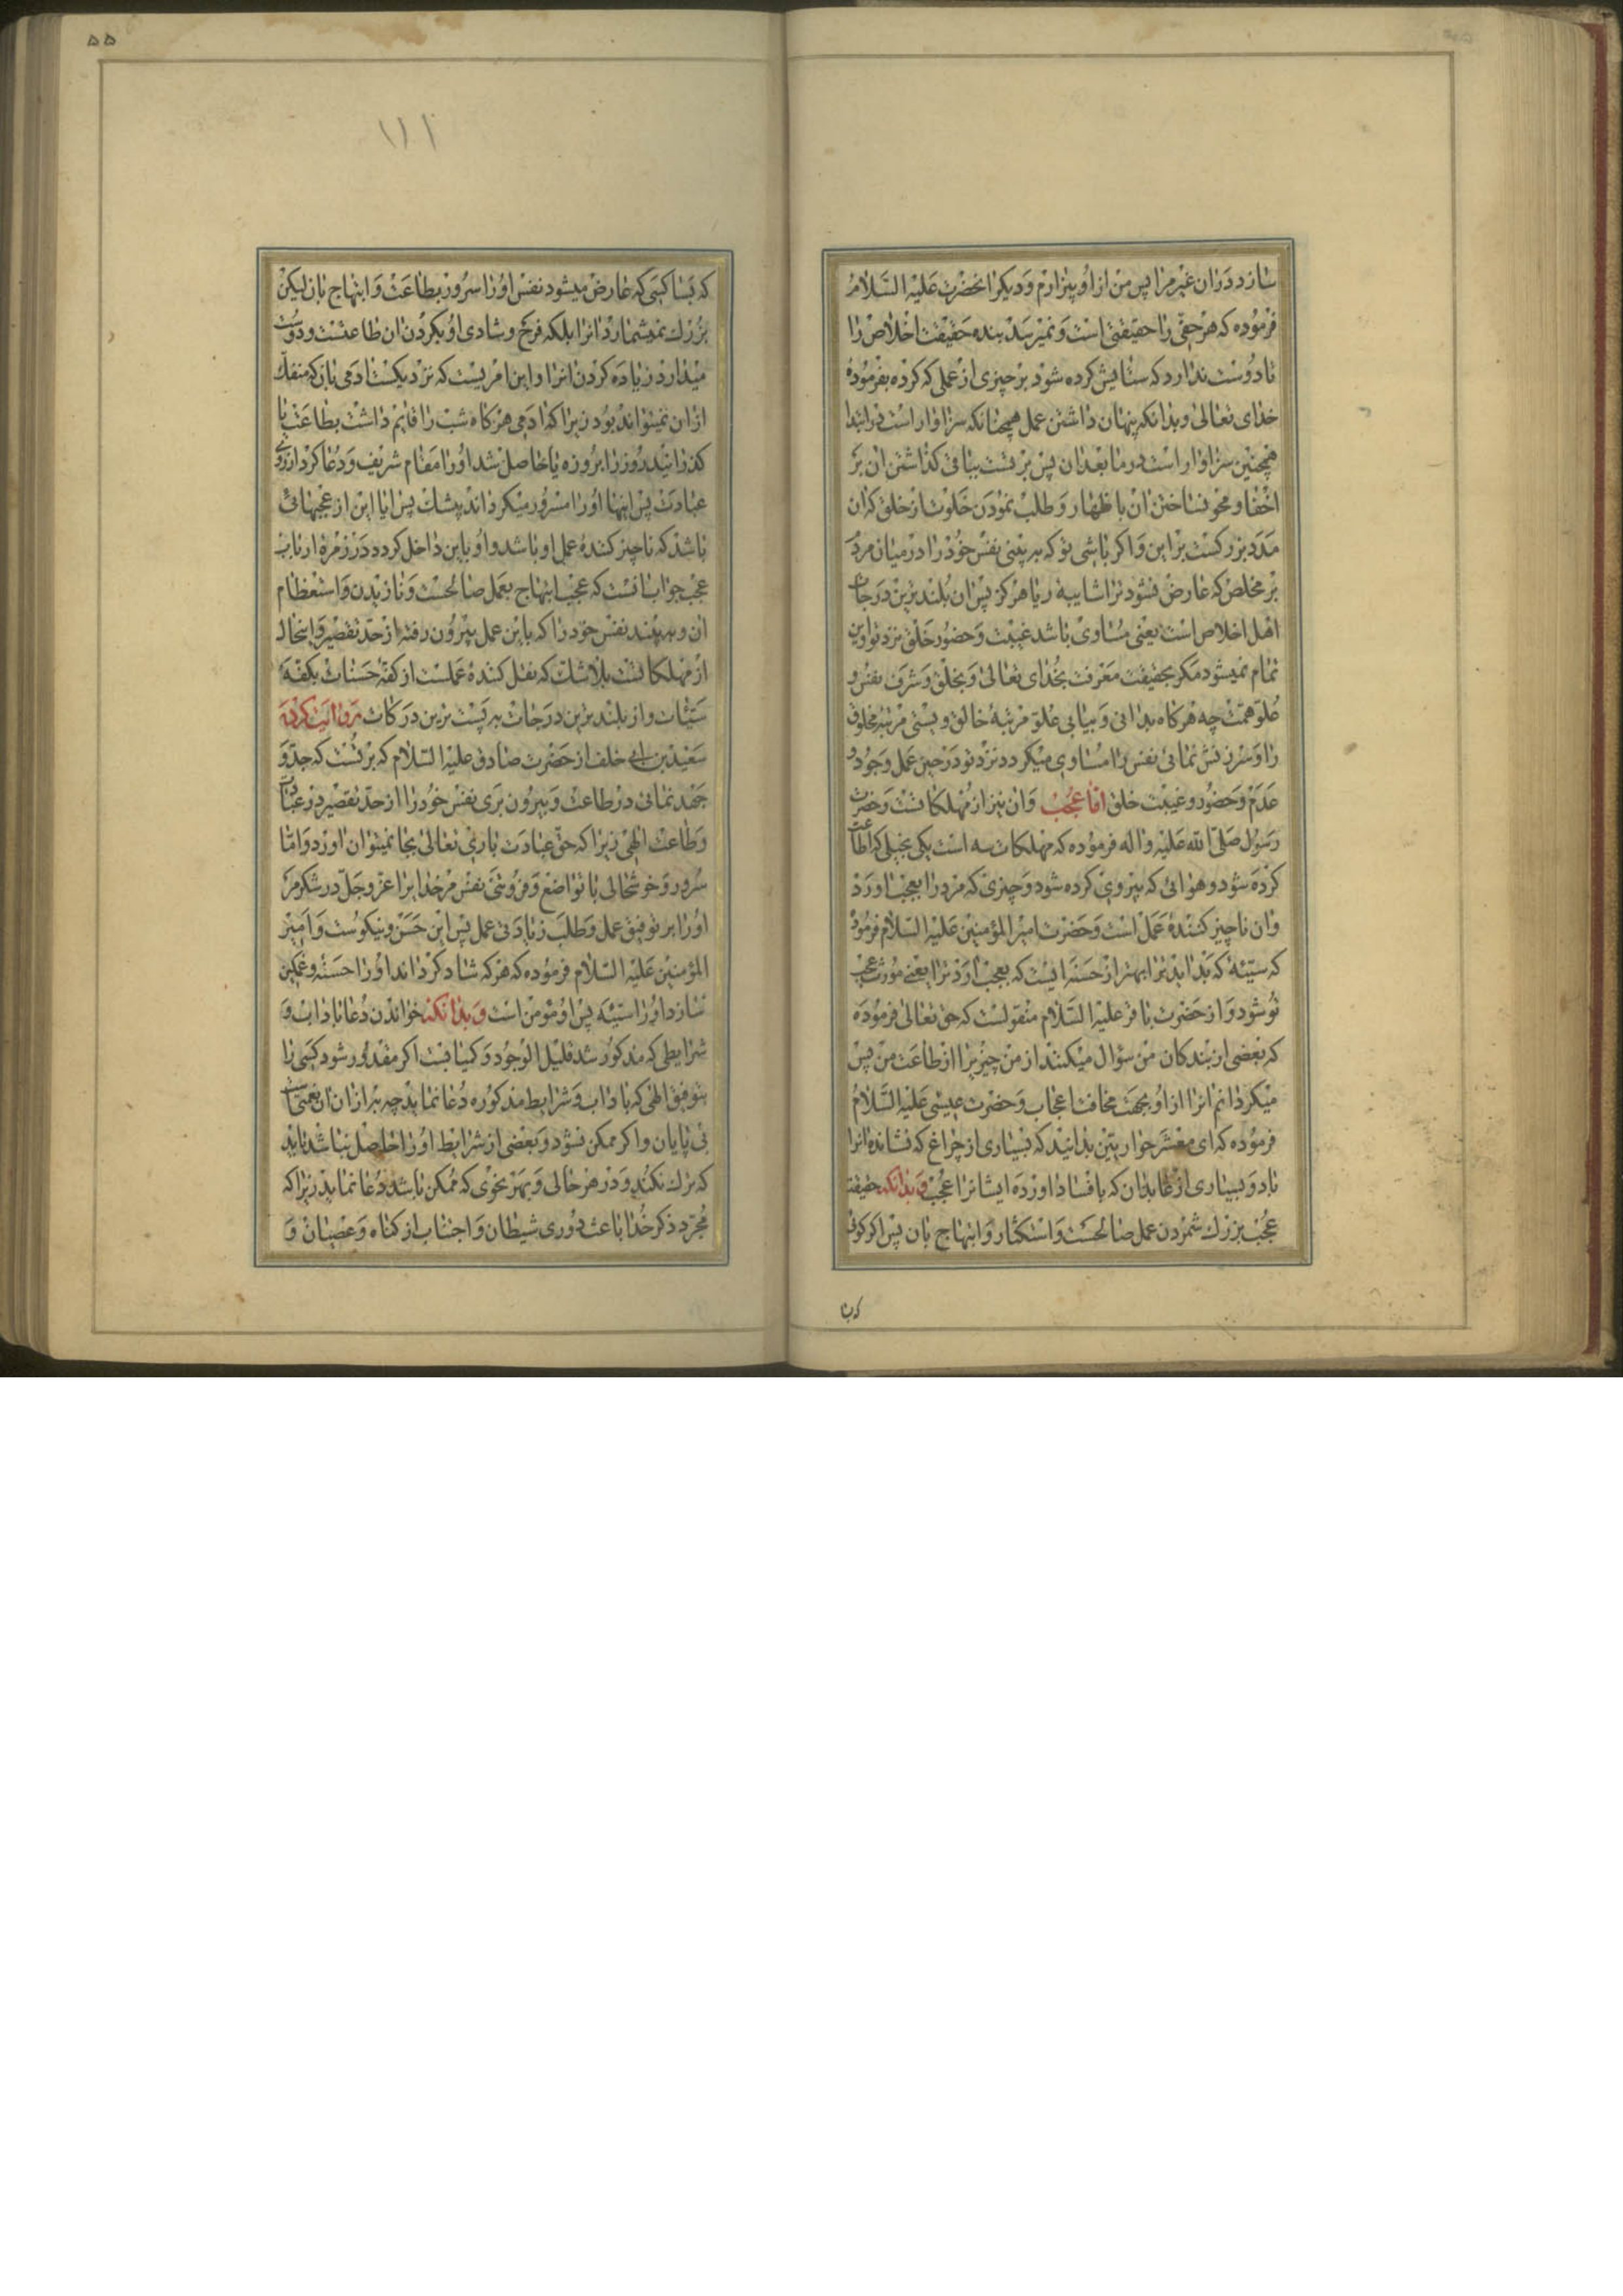 سازد در ان غیر مرا پس من از او بیزارم و دیکر انحضرت علیه السلام
فرموده که هر حقی را حقیقتی است و نمیرسد بنده حقیقت اخلاص را
تا دوست ندارد که ستایش کرده شود بر چیزی از عملی که کرده بفرموده
خدای تعالی و بدانکه پنهان داشتن عمل همچنانکه سزاوار است در ابتدا
همچنین سزاوار است در ما بعد ان پس بر تست بباقی کذاشتن ان بر
اخفا و محو نساختن ان باظهار و طلب نمودن خلوت از خلق که ان
مدد بزرکست بر این و اکر باشی تو که به بینی نفس خود را در میان مردم
بر مخلص که عارض نشود ترا شایبه ریا هرکز پس ان بلندترین درجات
اهل اخلاص است یعنی مساوی باشد غیبت و حضور خلق نزد تو و این
تمام نمیشود مکر بحقیقت معرفت بخدای تعالی و بخلق و شرف نفس و
علو همت چه هرکاه بدانی و بیابی علو مرتبهٔ خالق و پستی مرتبه مخلوق
را و سرزنش نمائی نفس را مساوی میکردد نزد تو در حین عمل وجود و
عدم و حضور و غیبت خلق اما عجب و ان نیز از مهلکاتست و حضرت
رسول صلی الله علیه واله فرموده که مهلکات سه است یکی بخیلی که اطاعت
کرده شود و هوائی که پیروی کرده شود و چیزی که مرد را بعجب اورد
و ان ناچیز کنندهٔ عمل است و حضرت امیر المؤمنین علیه السلام فرموده
که سیئهٔ که بد اید ترا بهتر از حسنه ایست که بعجب اورد ترا یعنی مورث عجب
تو شود و از حضرت باقر علیه السلام منقولست که حق تعالی فرموده
که بعضی از بندکان من سؤال میکنند از من چیزیرا از طاعت من پس
میکردانم انرا از او بجهت مخافت اعجاب و حضرت عیسی علیه السلام
فرموده که ای معشر حواریین بدانید که بسیاری از چراغ که نشانده انرا
باد و بسیاری از عابدان که بافساد اورده ایشانرا عجب و بدانکه حقیقت
عجب بزرك شمردن عمل صالحست و استکثار و ابتهاج بان پس اکر کوئی
که بسا
۵۵
۱۱۱
که بسا کسی که عارض میشود نفس او را سرور بطاعت و ابتهاج بان لیکن
بزرك نمیشمارد انرا بلکه فرح و شادی او بکردن ان طاعتست و دوست
میدارد زیاده کردن انرا و این امریست که نزدیکست ادمی بان که منفك
از ان نمیتواند بود زیرا که ادمی هرکاه شب را قایم داشت بطاعت یا
کذرانید روز را بروزه یا حاصل شد او را مقام شریف و دعا کرد از روی
عبادت پس اینها او را مسرور میکرداند بیشك پس ایا این از عجبهائی
باشد که ناچیز کنندهٔ عمل او باشد و او باین داخل کردد در زمرهٔ ارباب
عجب جواب انست که عجب ابتهاج بعمل صالحست و نازیدن و استعظام
ان و به بیند نفس خود را که باین عمل بیرون رفته از حد تقصیر و اینحال
از مهلکاتست بلاشك که نقل کنندهٔ عملست از کفهٔ حسنات بکفهٔ
سیئات و از بلندترین درجات به پست ترین درکات روایت کرده
سعید بن ابی خلف از حضرت صادق علیه السلام که بر تست که جد و
جهد نمائی در طاعت و بیرون نبری نفس خود را از حد تقصیر در عبادت
و طاعت الهی زیرا که حق عبادت باری تعالی بجا نمیتوان اورد و اما
سرور و خوشحالی با تواضع و فروتنی نفس مر خدایرا عز و جل در شکر مر
او را بر توفیق عمل و طلب زیادتی عمل پس این حسن و نیکوست و امیر
المؤمنین علیه السلام فرموده که هر که شاد کرداند او را حسنه و غمکین
سازد او را سیئه پس او مؤمن است و بدانکه خواندن دعا باداب و
شرایطی که مذکور شد قلیل الوجود و کمیابست اکر مقدور شود کسی را
بتوفیق الهی که باداب و شرایط مذکوره دعا نماید چه بهتر از ان ان نعمتیست
بی پایان و اکر ممکن نشود و بعضی از شرایط او را حاصل نباشد باید
که ترك نکند و در هر حالی و بهر نحوی که ممکن باشد دعا نماید زیرا که
مجرد ذکر خدا باعث دوری شیطان و اجتناب از کناه و عصیان و